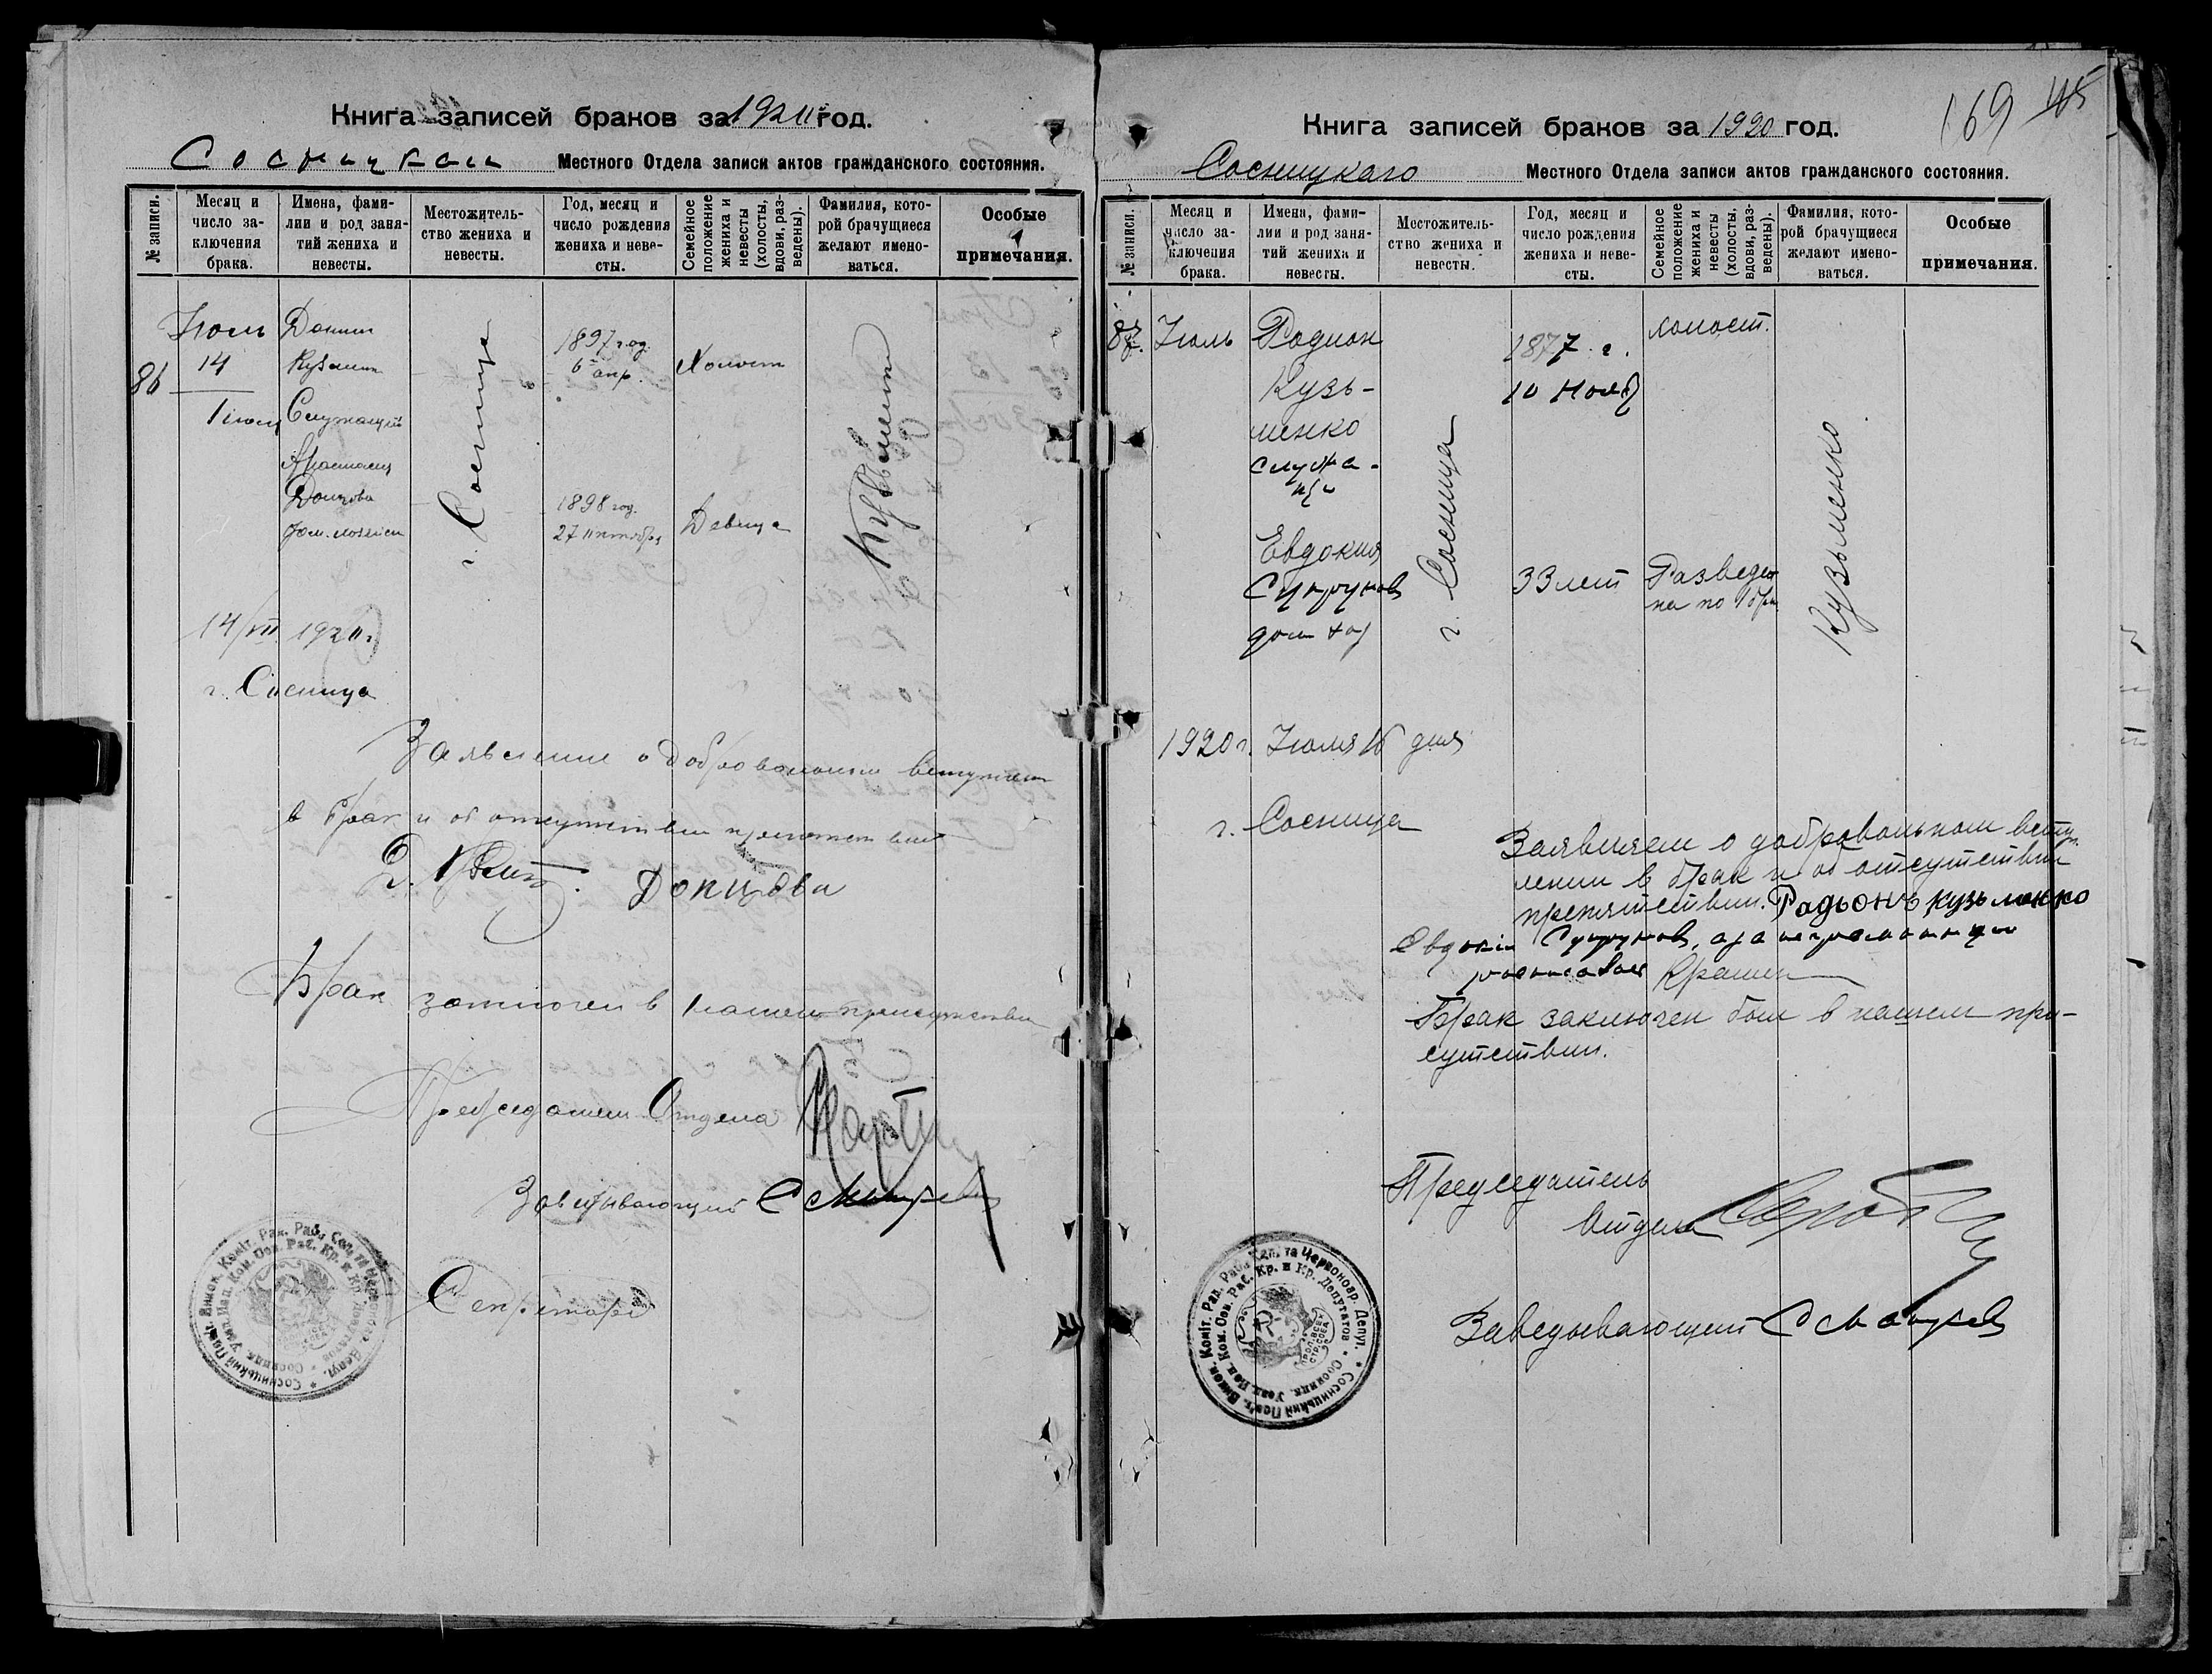 Книга записей браков за 1920 год.
Сосницкаго Местного Отдела записи актов гражданского состояния.
№ записи.
Месяц и число за-
ключения
брака.
Имена, фами-
лии и род заня-
тий жениха и
невесты.
Местожитель-
ство жениха и
невесты.
Год, месяц и
число рождения
жениха и неве-
сты.
Семейное
положение
жениха и
невесты
(холосты,
вдови, раз-
ведены).
Фамилия, кото-
рой брачущиеся
желают имено-
ваться.
Особые
примечания.
86
Июль
14
Служащий
Донцова
г. Сосница
1897 год.
6 апр.
Холост
1898 год.
27 октября
Девица
14/VII 1920 г.
г. Сосница
Заявление о добровольном вступлен
в брак и об отсутствии препятствий
Донцова
Брак заключен в нашем присутствии
Председатель Отдела
Заведывающий
Секретарь
169 115
Книга записей браков за 1920 год.
Сосницкаго Местного Отдела записи актов гражданского состояния.
№ записи.
Месяц и
число за-
ключения
брака.
Имена, фами-
лии и род заня-
тий жениха и
невесты.
Местожитель-
ство жениха и
невесты.
Год, месяц и
число рождения
жениха и неве-
сты.
Семейное
положение
жениха и
невесты
(холосты,
вдови, раз-
ведены).
Фамилия, кото-
рой брачущиеся
желают имено-
ваться.
Особые
примечания.
87.
Июль
Родион
Кузь-
менко
служа-
щи
Евдокия
Супрунов
дом хоз
г. Сосница
1877 г.
10 Нояб
33 лет
холост.
Разведе
на по 1 бра
Кузьменко
1920 г. Июля 16 дня
г. Сосница
Заявляем о добровольном всту-
плении в брак и об отсутствии
препятствий. Радьонъ кузьменко
Евдокія Супрунов, а за неграмотную
росписався
Брак заключен был в нашем при-
сутствии.
Председатель
Отдела
Заведывающий